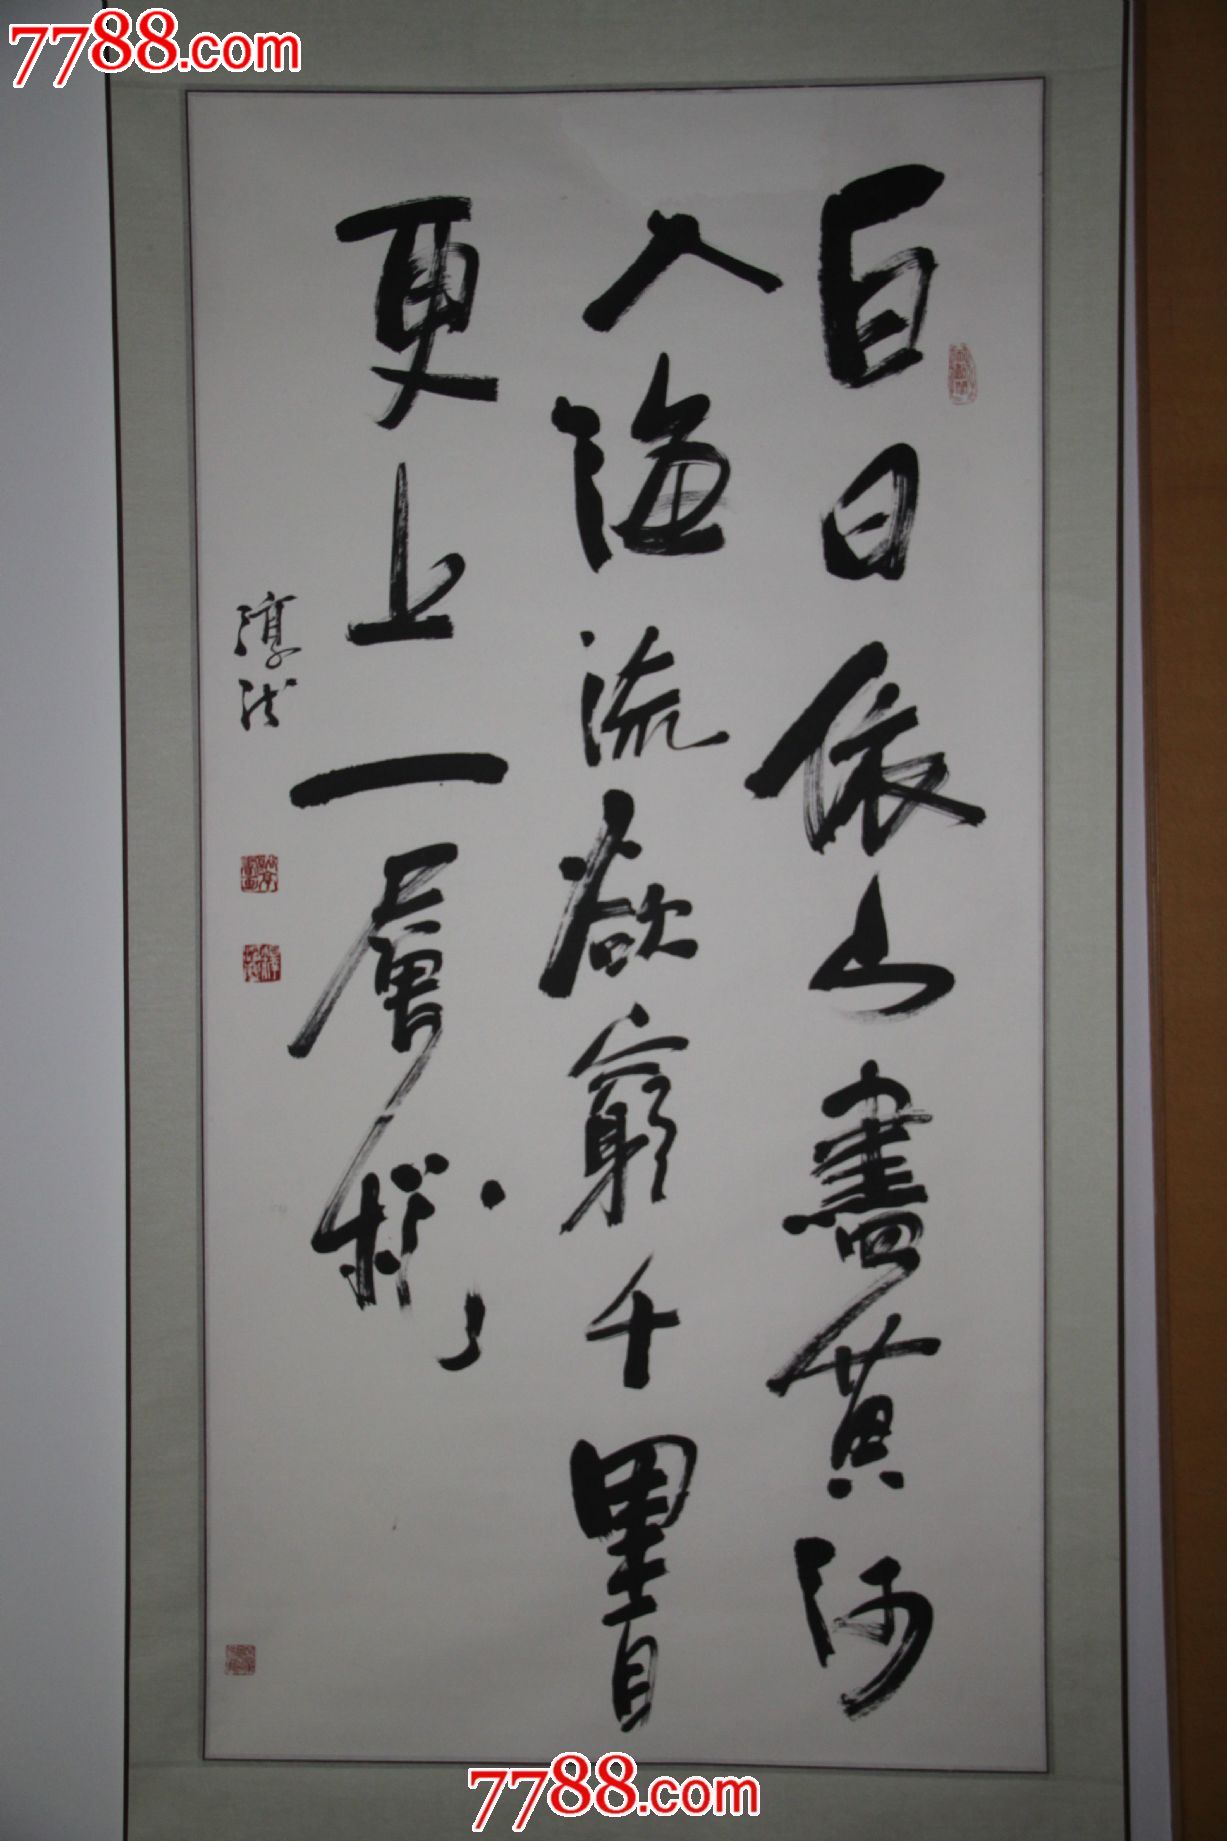 7788.com
白日依山盡黄河
入海流欲窮千里目
更上一層樓
7788.com